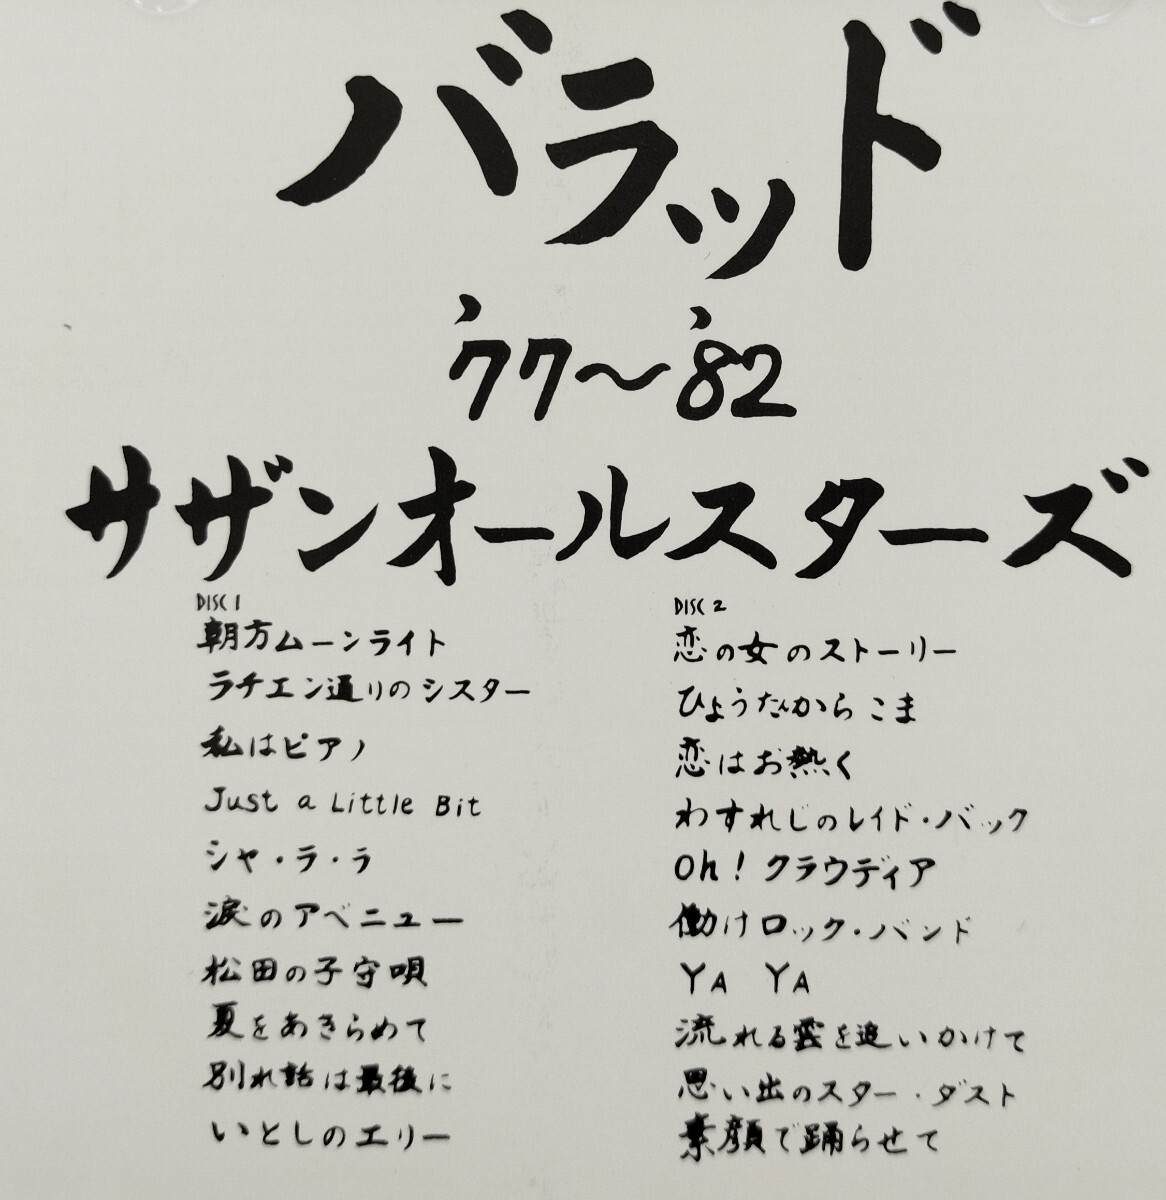 バラッド
'77〜'82
サザンオールスターズ
DISC 1
朝方ムーンライト
ラチエン通りのシスター
私はピアノ
Just a Little Bit
シャ・ラ・ラ
涙のアベニュー
松田の子守唄
夏をあきらめて
別れ話は最後に
いとしのエリー
DISC 2
恋の女のストーリー
ひょうたんからこま
恋はお熱く
わすれじのレイド・バック
Oh! クラウディア
働けロック・バンド
YA YA
流れる雲を追いかけて
思い出のスター・ダスト
素顔で踊らせて